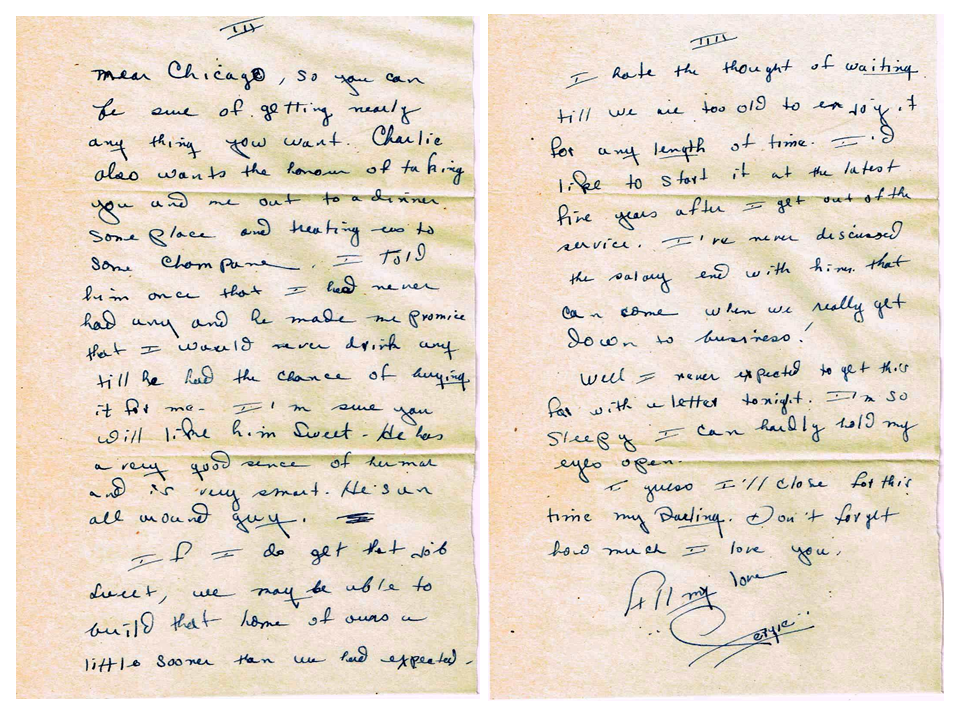 III
near Chicago, so you can
be sure of getting nearly
any thing you want. Charlie
also wants the honour of taking
you and me out to a dinner
some place and treating us to
some Champane. I told
him once that I had never
had any and he made me promise
that I would never drink any
till he had the chance of buying
it for me. I'm sure you
will like him Sweet. He has
a very good sence of humar
and is very smart. He's an
all around guy.
If I do get that job
Sweet, we may be able to
build that home of ours a
little sooner than we had expected.
IIII
I hate the thought of waiting
till we are too old to enjoy it
for any length of time. I'd
like to start it at the latest
five years after I get out of the
service. I've never discussed
the salary end with him. that
can come when we really get
down to business!
Well I never expected to get this
far with a letter tonight. I'm so
sleepy I can hardly hold my
eyes open.
I guess I'll close for this
time my Darling. Don't forget
how much I love you.
All my love